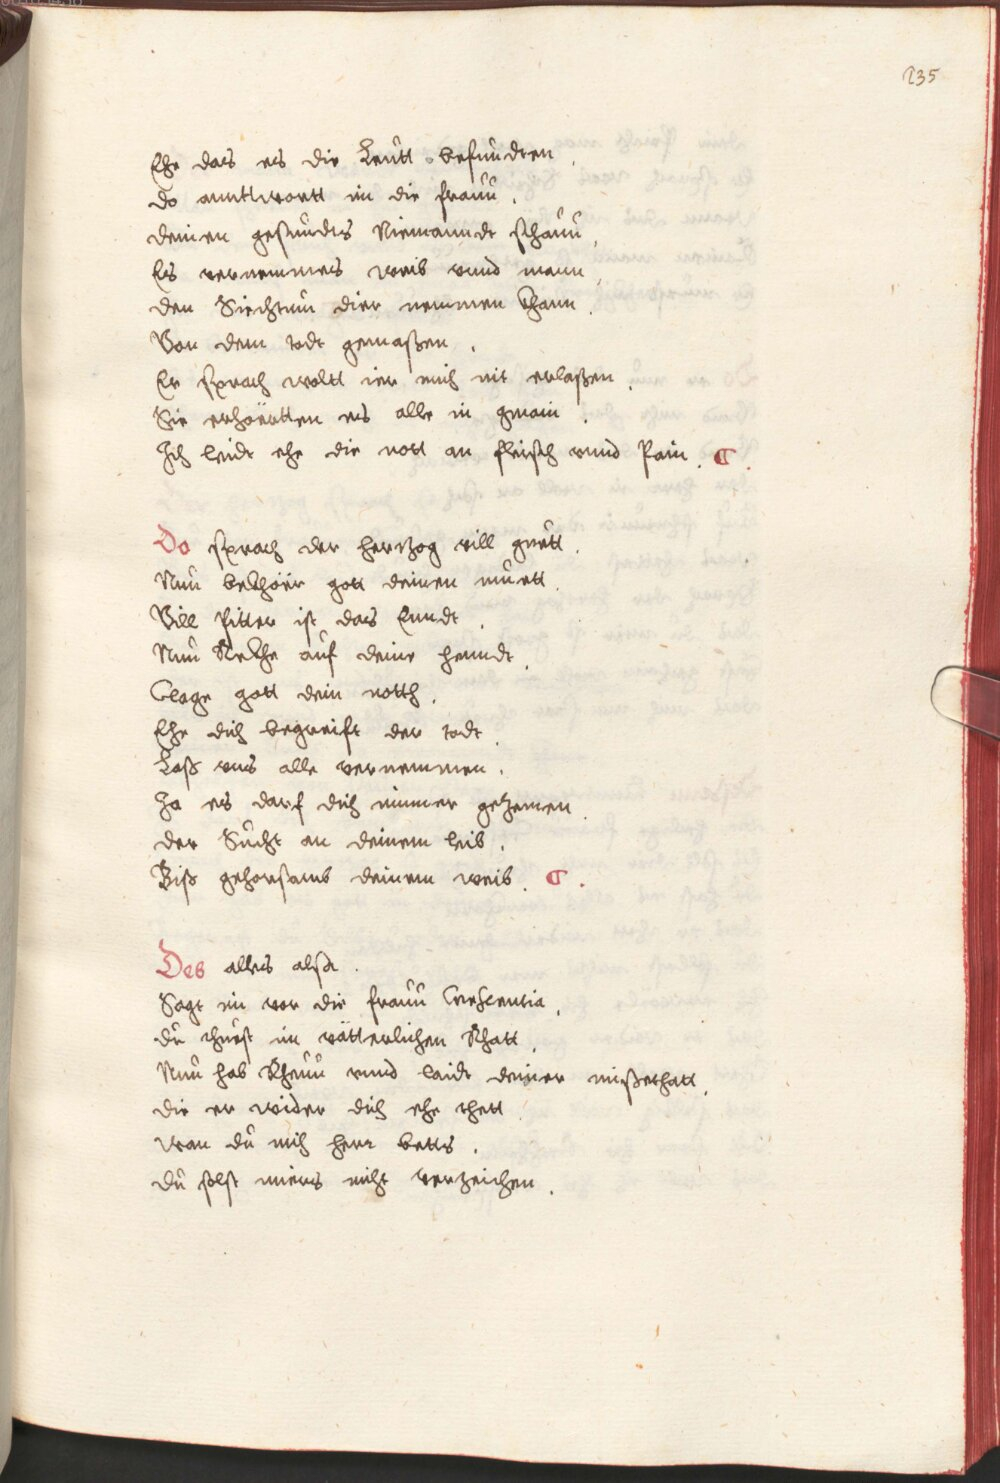 235
Ehe das es die Leutt befundten .
do anntwortt im die frauu .
deinen gesundts Niemanndt schauu .
Es vernemmes weib vnnd mann .
den Siechtum dier nemmen khann .
Von dem todt gemaßen .
Er sprach woltt ier mich nit erlaßen .
Sie erhörtten es alle in gmain .
Ich leidt ehe die nott an fleisch vnnd Pain . ¶ .
Do sprach der hertzog vill guett .
Nun bekhör gott deinen muett .
Vill Pitter ist das Enndt .
Nun Rekhe auf deine henndt .
Clage gott dein notth .
Ehe dich begreift der todt .
Laß vns alle vernemmen .
Ja es darf dich nimmer gezemen .
der Sucht an deinem leib .
Biß gehorsamb deinem weib . ¶ .
Des alles alßo .
Sagt im vor die frauu Crescentia .
du thuest im vätterlichen Rhatt .
Nun hab Rheuu vnnd laidt deiner mißethatt .
die er wider dich ehe thett .
wan du mich herr betts .
du solst miers nicht verzeichen .